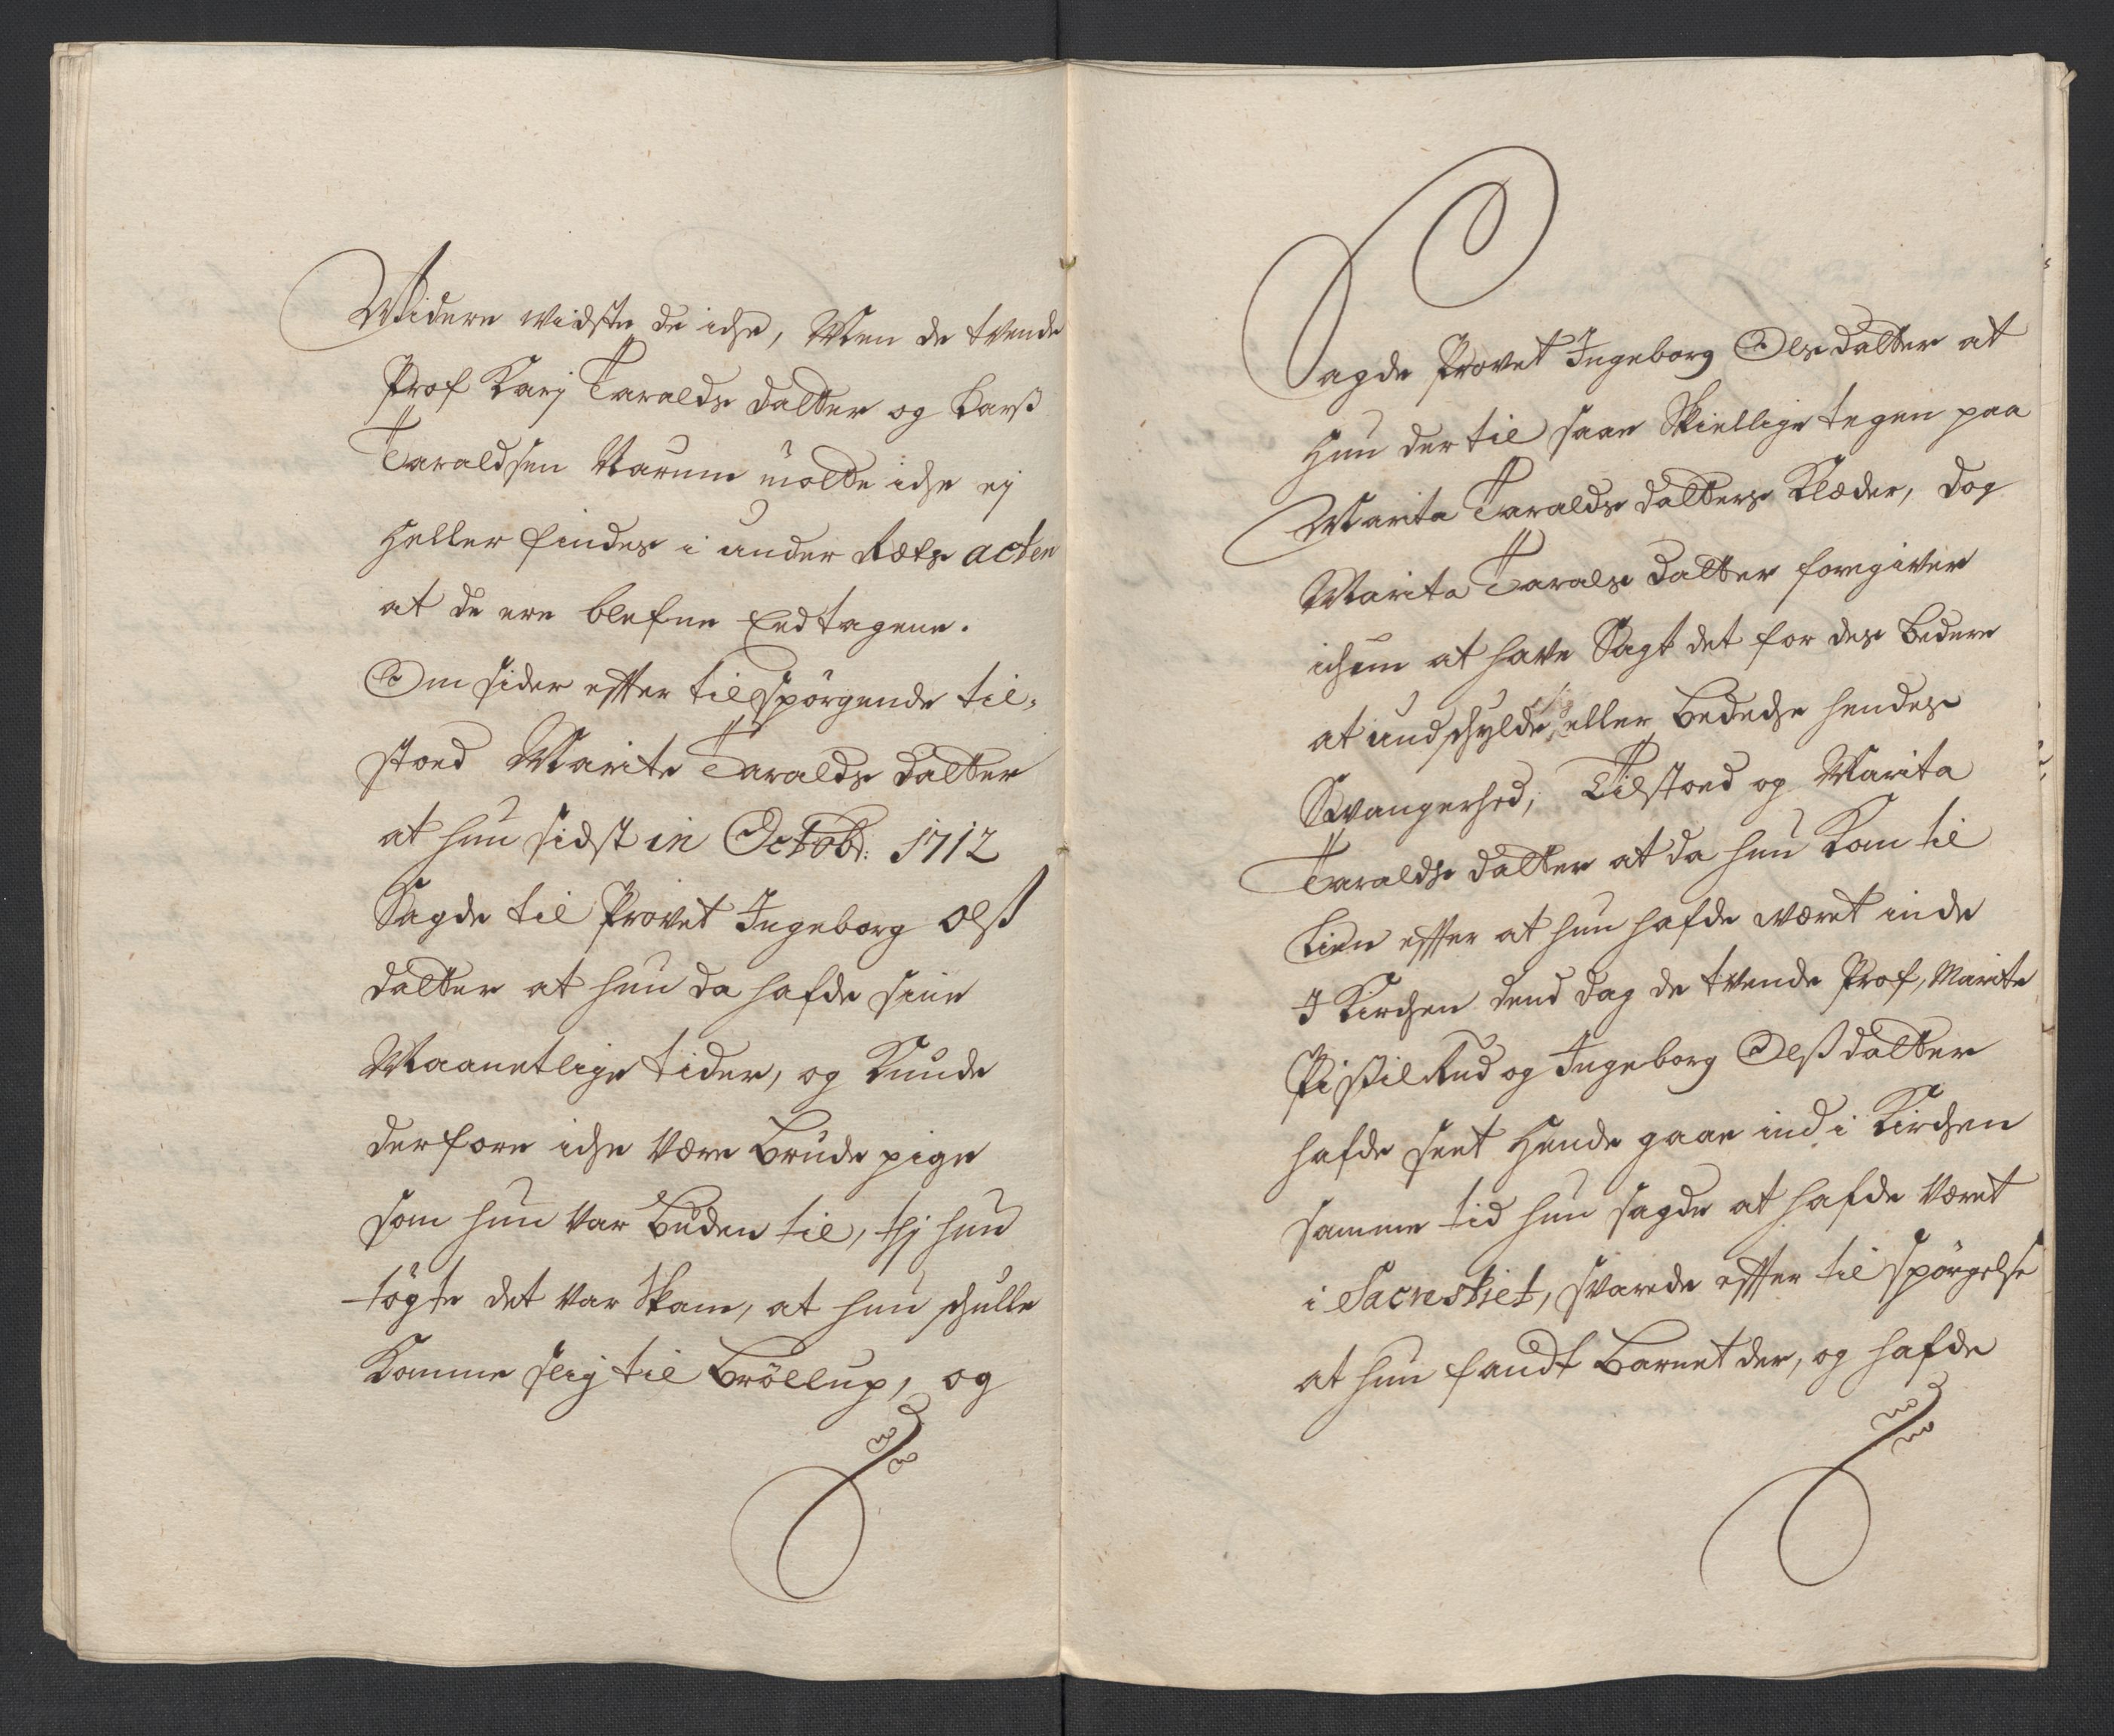 Widere widste de iche, Men de tvende
Prof Karj Taralds datter og Larß
Taraldsen Narum mötte iche ej
heller findes i under Rætz acten
at de ere blefne Eedtagene.
Om sider effter tilspörgende til,
stoed Marite Taralds datter
at hun sidst in Octobr: 1712
Sagde til Provet Ingeborg Olß
datter at hun da hafde sine
Maanetlige tider, og Kunde
derfore iche være Brude pige
som hun var buden til, thj hun
tögte det var Skam, at hun schulle
Komme slig til Bröllup, og
Sagde Provet Ingeborg Olsdatter at
hun der til saae Skiellige tegen paa
Marita Taralds datters Klæder, dog
Marita Tarals datter foregiver
ichun at have Sagt det for des bedere
at undschylde eller bedeche hendes
Svangerhed; Tilstoed og Marita
Taralds datter at da hun Kom til
Lien effter at hun hafde været inde
I Kirchen dend dag de tvende Prof, Marite
Pistilrud og Ingeborg Olßdatter
hafde seet hende gaae ind i Kirchen
samme tid hun sagde at hafde været
i Sacrestiet, svarede effter til spörgelse
at hun fandt Barnet der, og hafde